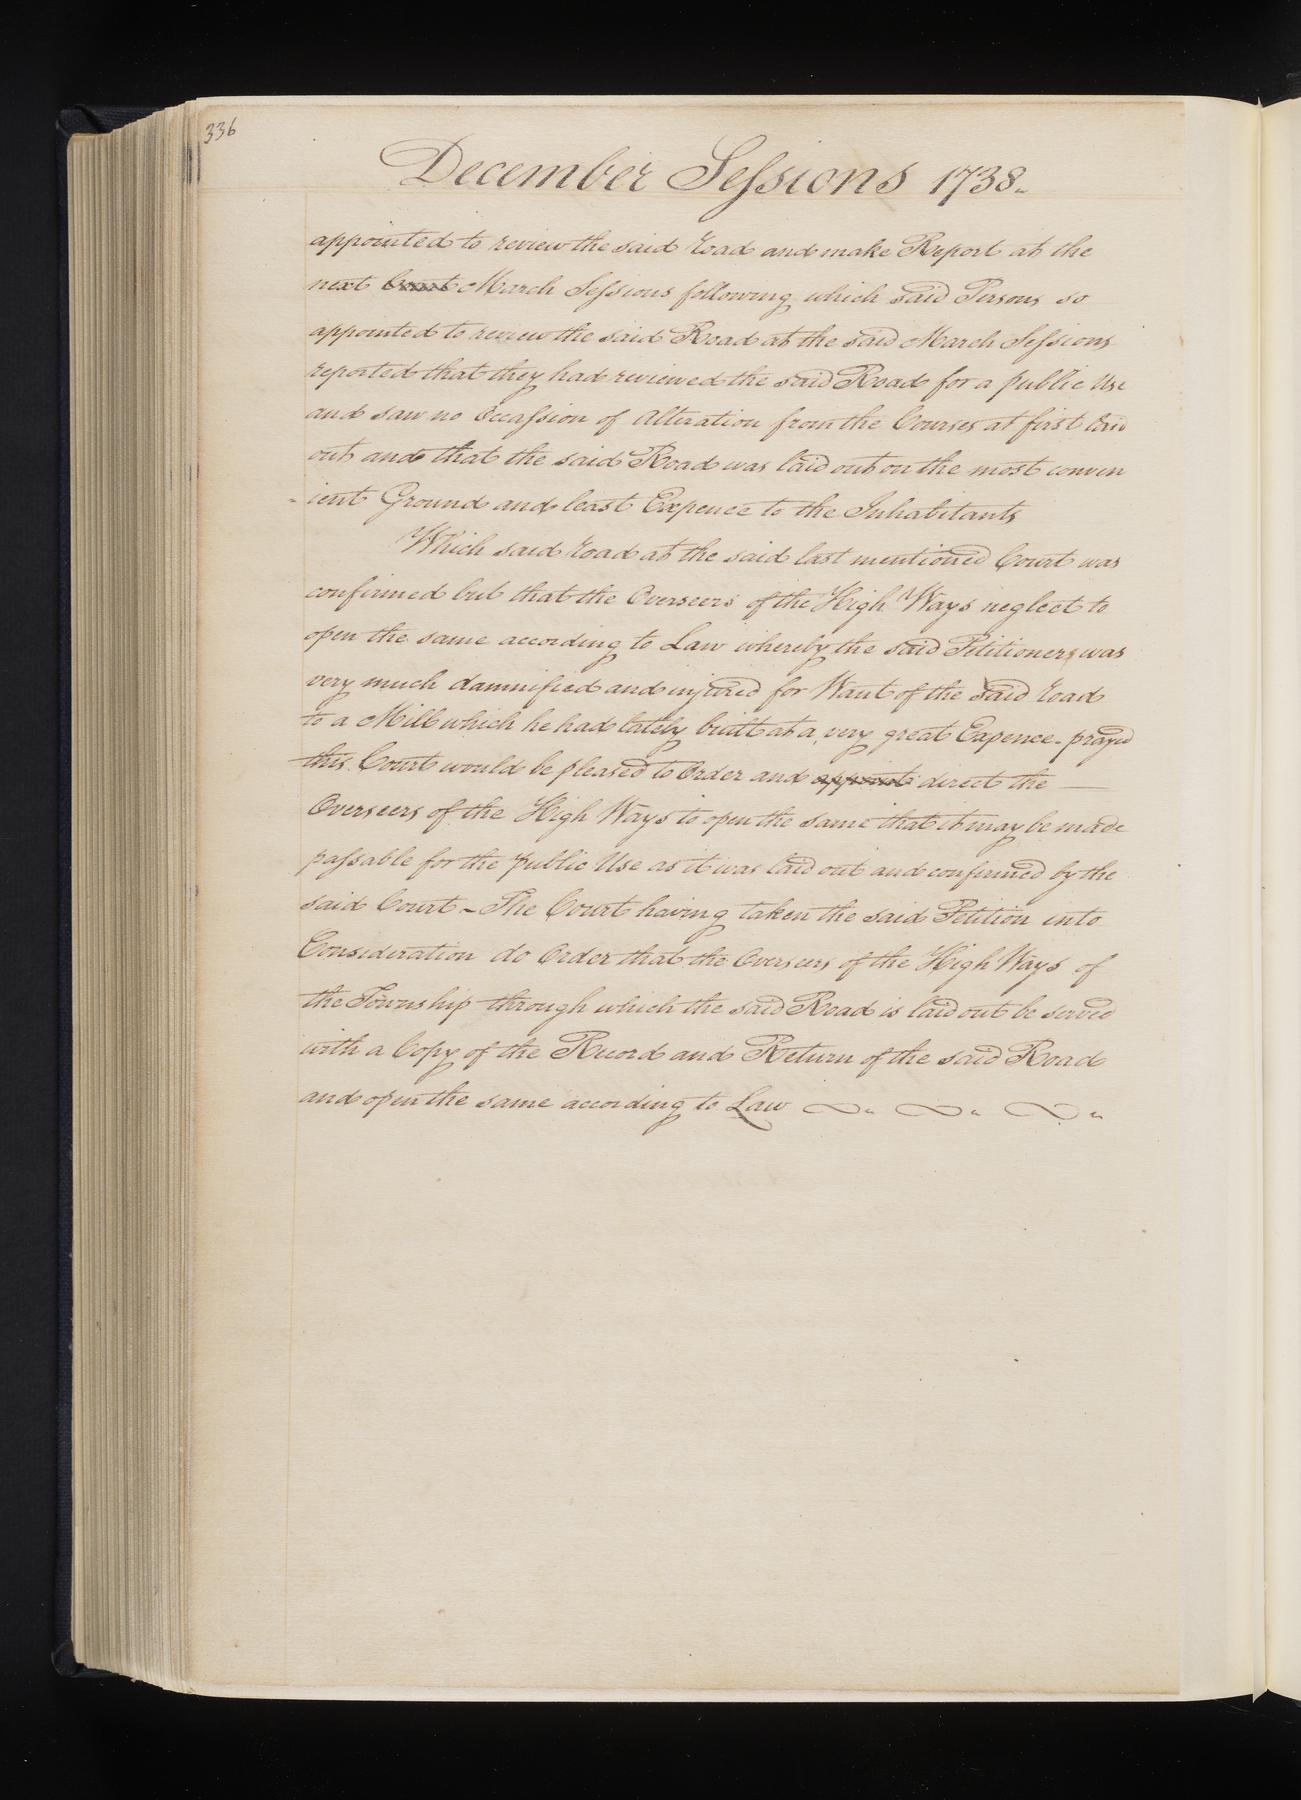 336
December Sessions 1738.
appointed to review the said road and make Report at the
next Court March Sessions following which said Persons so
appointed to review the said Road at the said March Sessions
reported that they had reviewed the said Road for a public Use
and saw no Occassion of Alteration from the Courses at first laid
out and that the said Road was laid out on the most conven
-ient Ground and least Expence to the Inhabitants
Which said road at the said last mentioned Court was
confirmed but that the Overseers of the High Ways neglect to
open the same according to Law whereby the said Petitioners was
very much damnified and injured for Want of the said road
to a Mill which he had lately built at a very great Expence - prayed
this Court would be pleased to Order and appoint direct the —
Overseers of the High Ways to open the same that it may be made
passable for the public Use as it was laid out and confirmed by the
said Court - The Court having taken the said Petition into
Consideration do Order that the Overseers of the High Ways of
the Township through which the said Road is laid out be served
with a Copy of the Record and Return of the said Road
and open the same according to Law